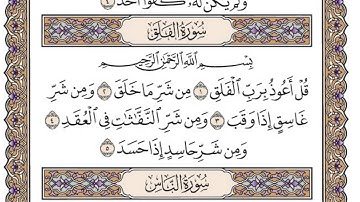 وَلَمْ يَكُن لَّهُۥ كُفُوًا أَحَدٌۢ ٤
سُورَةُ الفَلَقِ
بِسْمِ ٱللَّهِ ٱلرَّحْمَٰنِ ٱلرَّحِيمِ
قُلْ أَعُوذُ بِرَبِّ ٱلْفَلَقِ ١ مِن شَرِّ مَا خَلَقَ ٢ وَمِن شَرِّ
غَاسِقٍ إِذَا وَقَبَ ٣ وَمِن شَرِّ ٱلنَّفَّٰثَٰتِ فِى ٱلْعُقَدِ ٤
وَمِن شَرِّ حَاسِدٍ إِذَا حَسَدَ ٥
سُورَةُ النَّاسِ